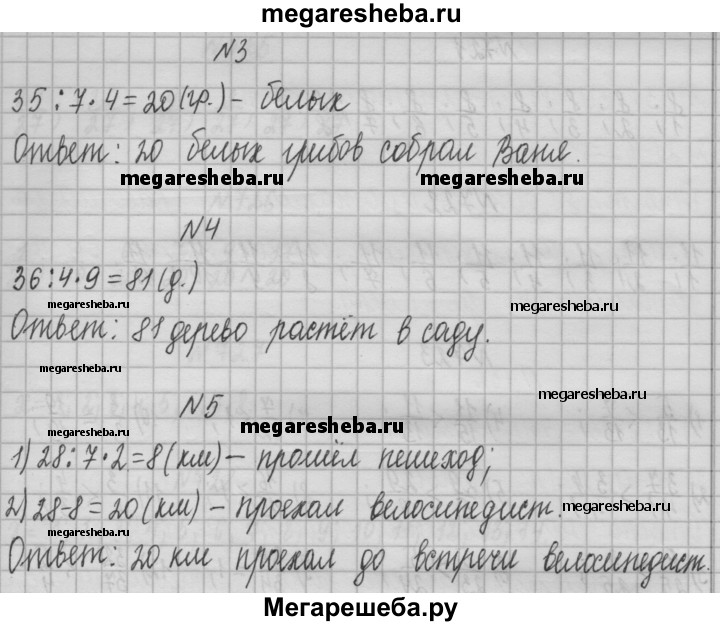 megaresheba.ru
N3
35 : 7 · 4 = 20 (гр.) – белых
Ответ: 20 белых грибов собрал Ваня.
megaresheba.ru megaresheba.ru
N4
36 : 4 · 9 = 81 (д.)
megaresheba.ru megaresheba.ru
Ответ: 81 дерево растёт в саду.
megaresheba.ru
megaresheba.ru
N5
megaresheba.ru
megaresheba.ru
1) 28 : 7 · 2 = 8 (км) – прошёл пешеход;
2) 28 – 8 = 20 (км) – проехал велосипедист.
megaresheba.ru megaresheba.ru
Ответ: 20 км проехал до встречи велосипедист.
Мегарешеба.ру